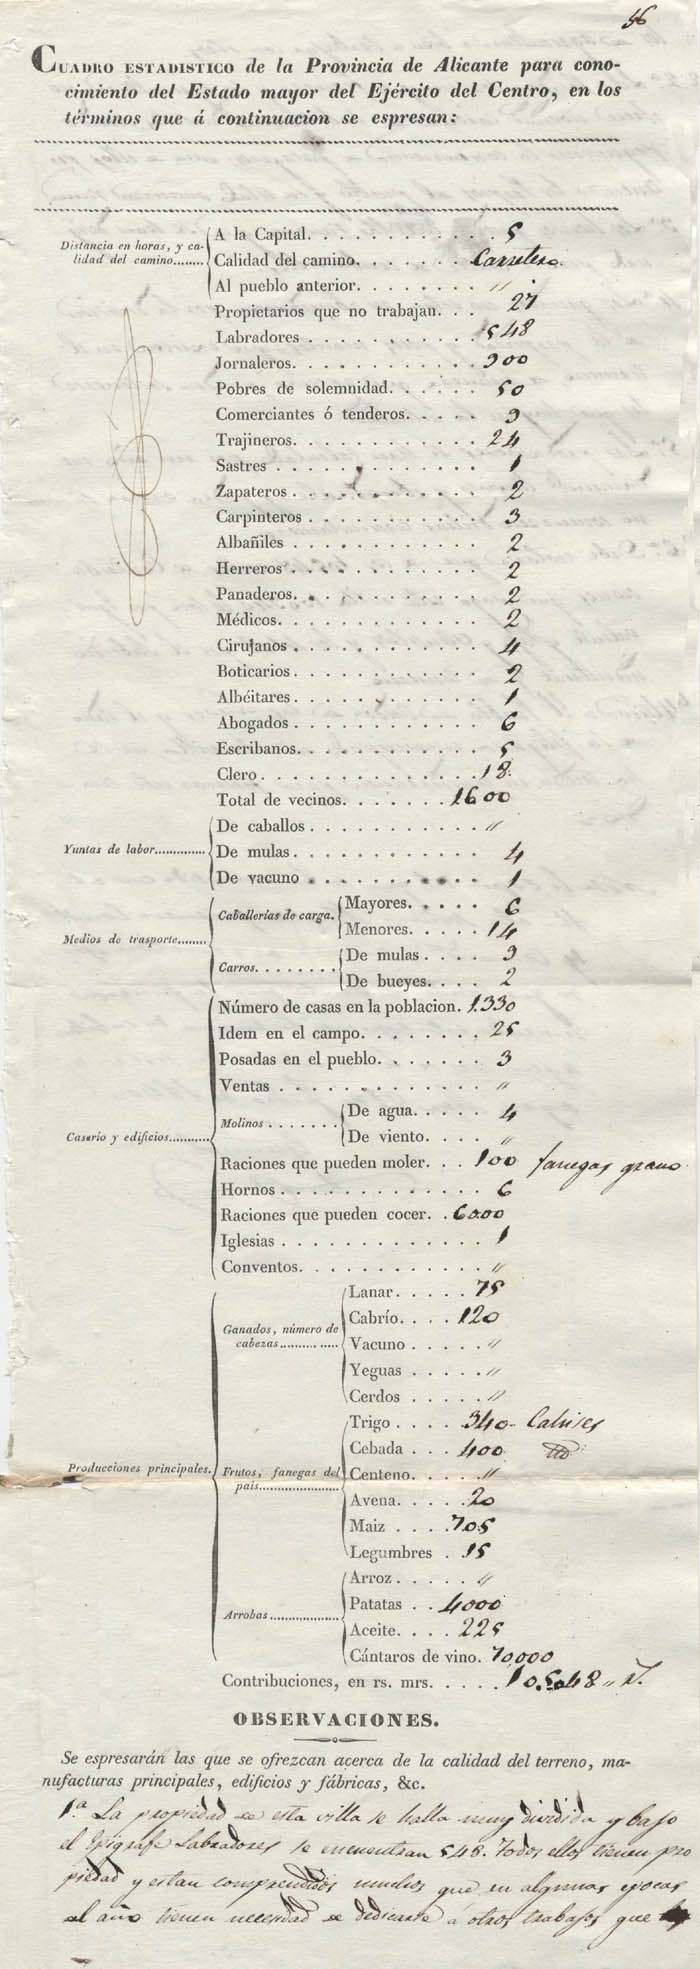 56
CUADRO ESTADISTICO de la Provincia de Alicante para cono-
cimiento del Estado mayor del Ejército del Centro, en los
términos que á continuacion se espresan:
Distancia en horas, y ca-
lidad del camino........
A la Capital. . . . . . . . . . . . 5
Calidad del camino. . . . . . . Carretera.
Al pueblo anterior. . . . . . . . "
Propietarios que no trabajan. . . 27
Labradores . . . . . . . . . . . . 548
Jornaleros. . . . . . . . . . . . . 900
Pobres de solemnidad. . . . . . 50
Comerciantes ó tenderos. . . . . 9
Trajineros. . . . . . . . . . . . . 24
Sastres . . . . . . . . . . . . . . 1
Zapateros . . . . . . . . . . . . . 2
Carpinteros . . . . . . . . . . . . 3
Albañiles . . . . . . . . . . . . . 2
Herreros . . . . . . . . . . . . . 2
Panaderos. . . . . . . . . . . . . 2
Médicos. . . . . . . . . . . . . . 2
Cirujanos . . . . . . . . . . . . . 4
Boticarios . . . . . . . . . . . . . 2
Albéitares. . . . . . . . . . . . . 1
Abogados . . . . . . . . . . . . . 6
Escribanos. . . . . . . . . . . . . 5
Clero. . . . . . . . . . . . . . . 18.
Total de vecinos. . . . . . . . 1600
Yuntas de labor..............
De caballos . . . . . . . . . . . . "
De mulas. . . . . . . . . . . . . 4
De vacuno . . . . . . . . . . . . 1
Medios de trasporte........
Caballerías de carga.
Mayores. . . . . 6
Menores. . . . . 14
Carros. . . . . . . .
De mulas . . . . 9
De bueyes. . . . 2
Caserío y edificios...........
Número de casas en la poblacion. 1.330
Idem en el campo. . . . . . . . 25
Posadas en el pueblo. . . . . . . 3
Ventas . . . . . . . . . . . . . . "
Molinos . . . . . . .
De agua. . . . . 4
De viento. . . . "
Raciones que pueden moler. . . 100 fanegas grano
Hornos . . . . . . . . . . . . . . 6
Raciones que pueden cocer. . 6000
Iglesias . . . . . . . . . . . . . . 1
Conventos. . . . . . . . . . . . . "
Producciones principales.
Ganados, número de
cabezas................
Lanar. . . . . . 75
Cabrío. . . . . 120
Vacuno . . . . . "
Yeguas . . . . . "
Cerdos . . . . . "
Frutos, fanegas del
pais.......................
Trigo . . . . . 340- Cahises
Cebada . . . . 400
Centeno. . . . . "
Avena. . . . . 20
Maiz . . . . . 705
Legumbres . 15
Arrobas....................
Arroz . . . . . . "
Patatas . . . 4000
Aceite. . . . . 225
Cántaros de vino. 70,000
Contribuciones, en rs. mrs. . . . . . 10.5048 "
OBSERVACIONES.
Se espresarán las que se ofrezcan acerca de la calidad del terreno, ma-
nufacturas principales, edificios y fábricas, &c.
1.a La propiedad de esta villa se halla muy dividida y bajo
el Epigrafe Labradores se encuentran 548. Todos ellos tienen pro
piedad y estan comprendidos muchos que en algunas epocas
del año tienen necesidad de dedicarse á otros trabajos que